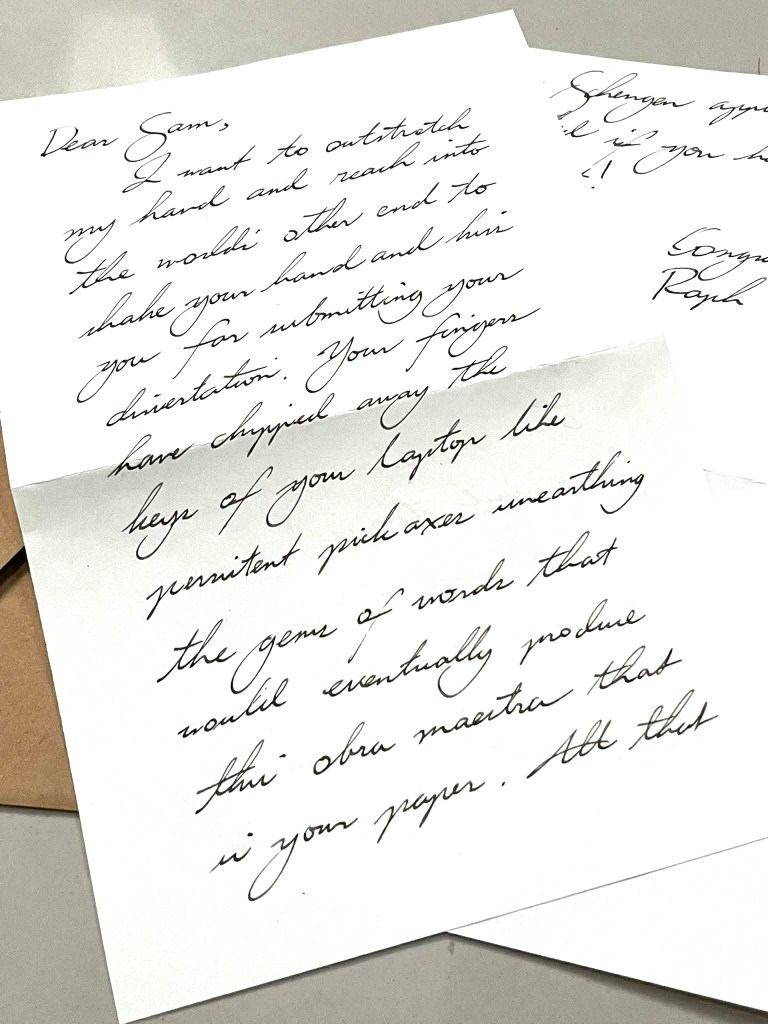 Dear Sam,
I want to outstretch
my hand and reach into
the world's other end to
shake your hand and kiss
you for submitting your
dissertation. Your fingers
have chipped away the
keys of your laptop like
persistent pickaxes unearthing
the gems of words that
would eventually produce
this obra maestra that
is your paper. All that
Schengen
if you
Ralph